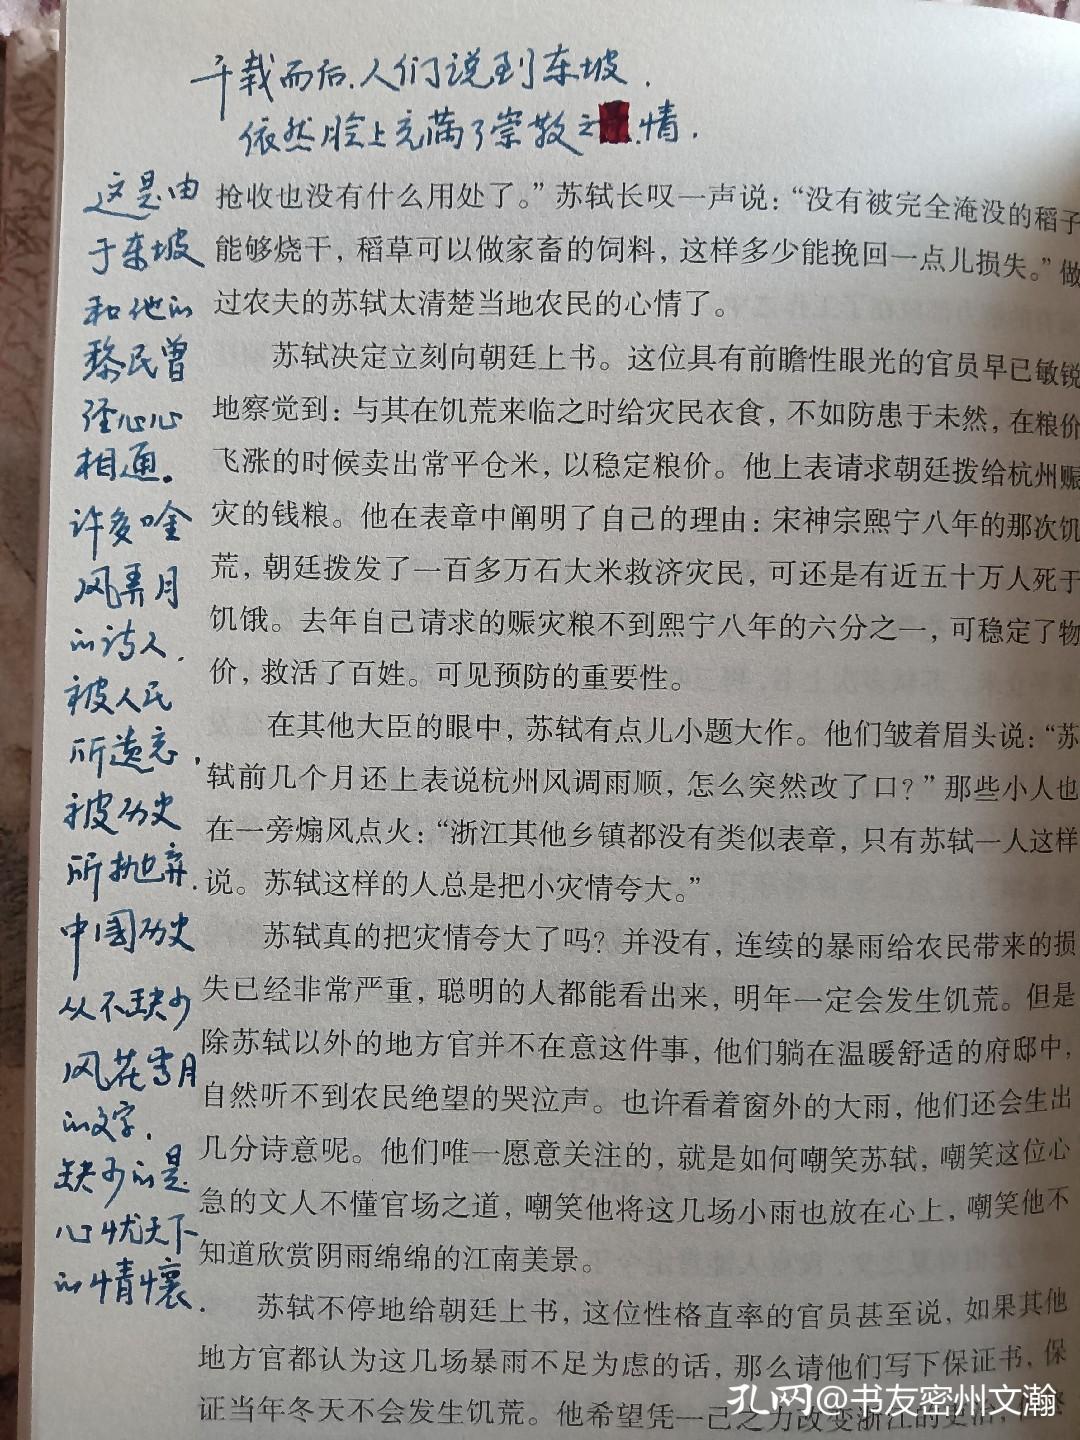 千载而后.人们说到东坡.
依然脸上充满了崇敬之情.
这是由
于东坡
和他的
黎民曾
经心心
相通。
许多唫
风弄月
的诗人.
被人民
所遗忘,
被历史
所抛弃.
中国历史
从不缺少
风花雪月
的文字.
缺少的是
心忧天下
的情怀.
抢收也没有什么用处了。”苏轼长叹一声说：“没有被完全淹没的稻子
能够烧干，稻草可以做家畜的饲料，这样多少能挽回一点儿损失。”做
过农夫的苏轼太清楚当地农民的心情了。
苏轼决定立刻向朝廷上书。这位具有前瞻性眼光的官员早已敏锐
地察觉到：与其在饥荒来临之时给灾民衣食，不如防患于未然，在粮价
飞涨的时候卖出常平仓米，以稳定粮价。他上表请求朝廷拨给杭州赈
灾的钱粮。他在表章中阐明了自己的理由：宋神宗熙宁八年的那次饥
荒，朝廷拨发了一百多万石大米救济灾民，可还是有近五十万人死于
饥饿。去年自己请求的赈灾粮不到熙宁八年的六分之一，可稳定了物
价，救活了百姓。可见预防的重要性。
在其他大臣的眼中，苏轼有点儿小题大作。他们皱着眉头说：“苏
轼前几个月还上表说杭州风调雨顺，怎么突然改了口？”那些小人也
在一旁煽风点火：“浙江其他乡镇都没有类似表章，只有苏轼一人这样
说。苏轼这样的人总是把小灾情夸大。”
苏轼真的把灾情夸大了吗？并没有，连续的暴雨给农民带来的损
失已经非常严重，聪明的人都能看出来，明年一定会发生饥荒。但是
除苏轼以外的地方官并不在意这件事，他们躺在温暖舒适的府邸中，
自然听不到农民绝望的哭泣声。也许看着窗外的大雨，他们还会生出
几分诗意呢。他们唯一愿意关注的，就是如何嘲笑苏轼，嘲笑这位心
急的文人不懂官场之道，嘲笑他将这几场小雨也放在心上，嘲笑他不
知道欣赏阴雨绵绵的江南美景。
苏轼不停地给朝廷上书，这位性格直率的官员甚至说，如果其他
地方官都认为这几场暴雨不足为虑的话，那么请他们写下保证书，保
证当年冬天不会发生饥荒。他希望凭一己之力改变浙江的吏治，
孔网@书友密州文瀚